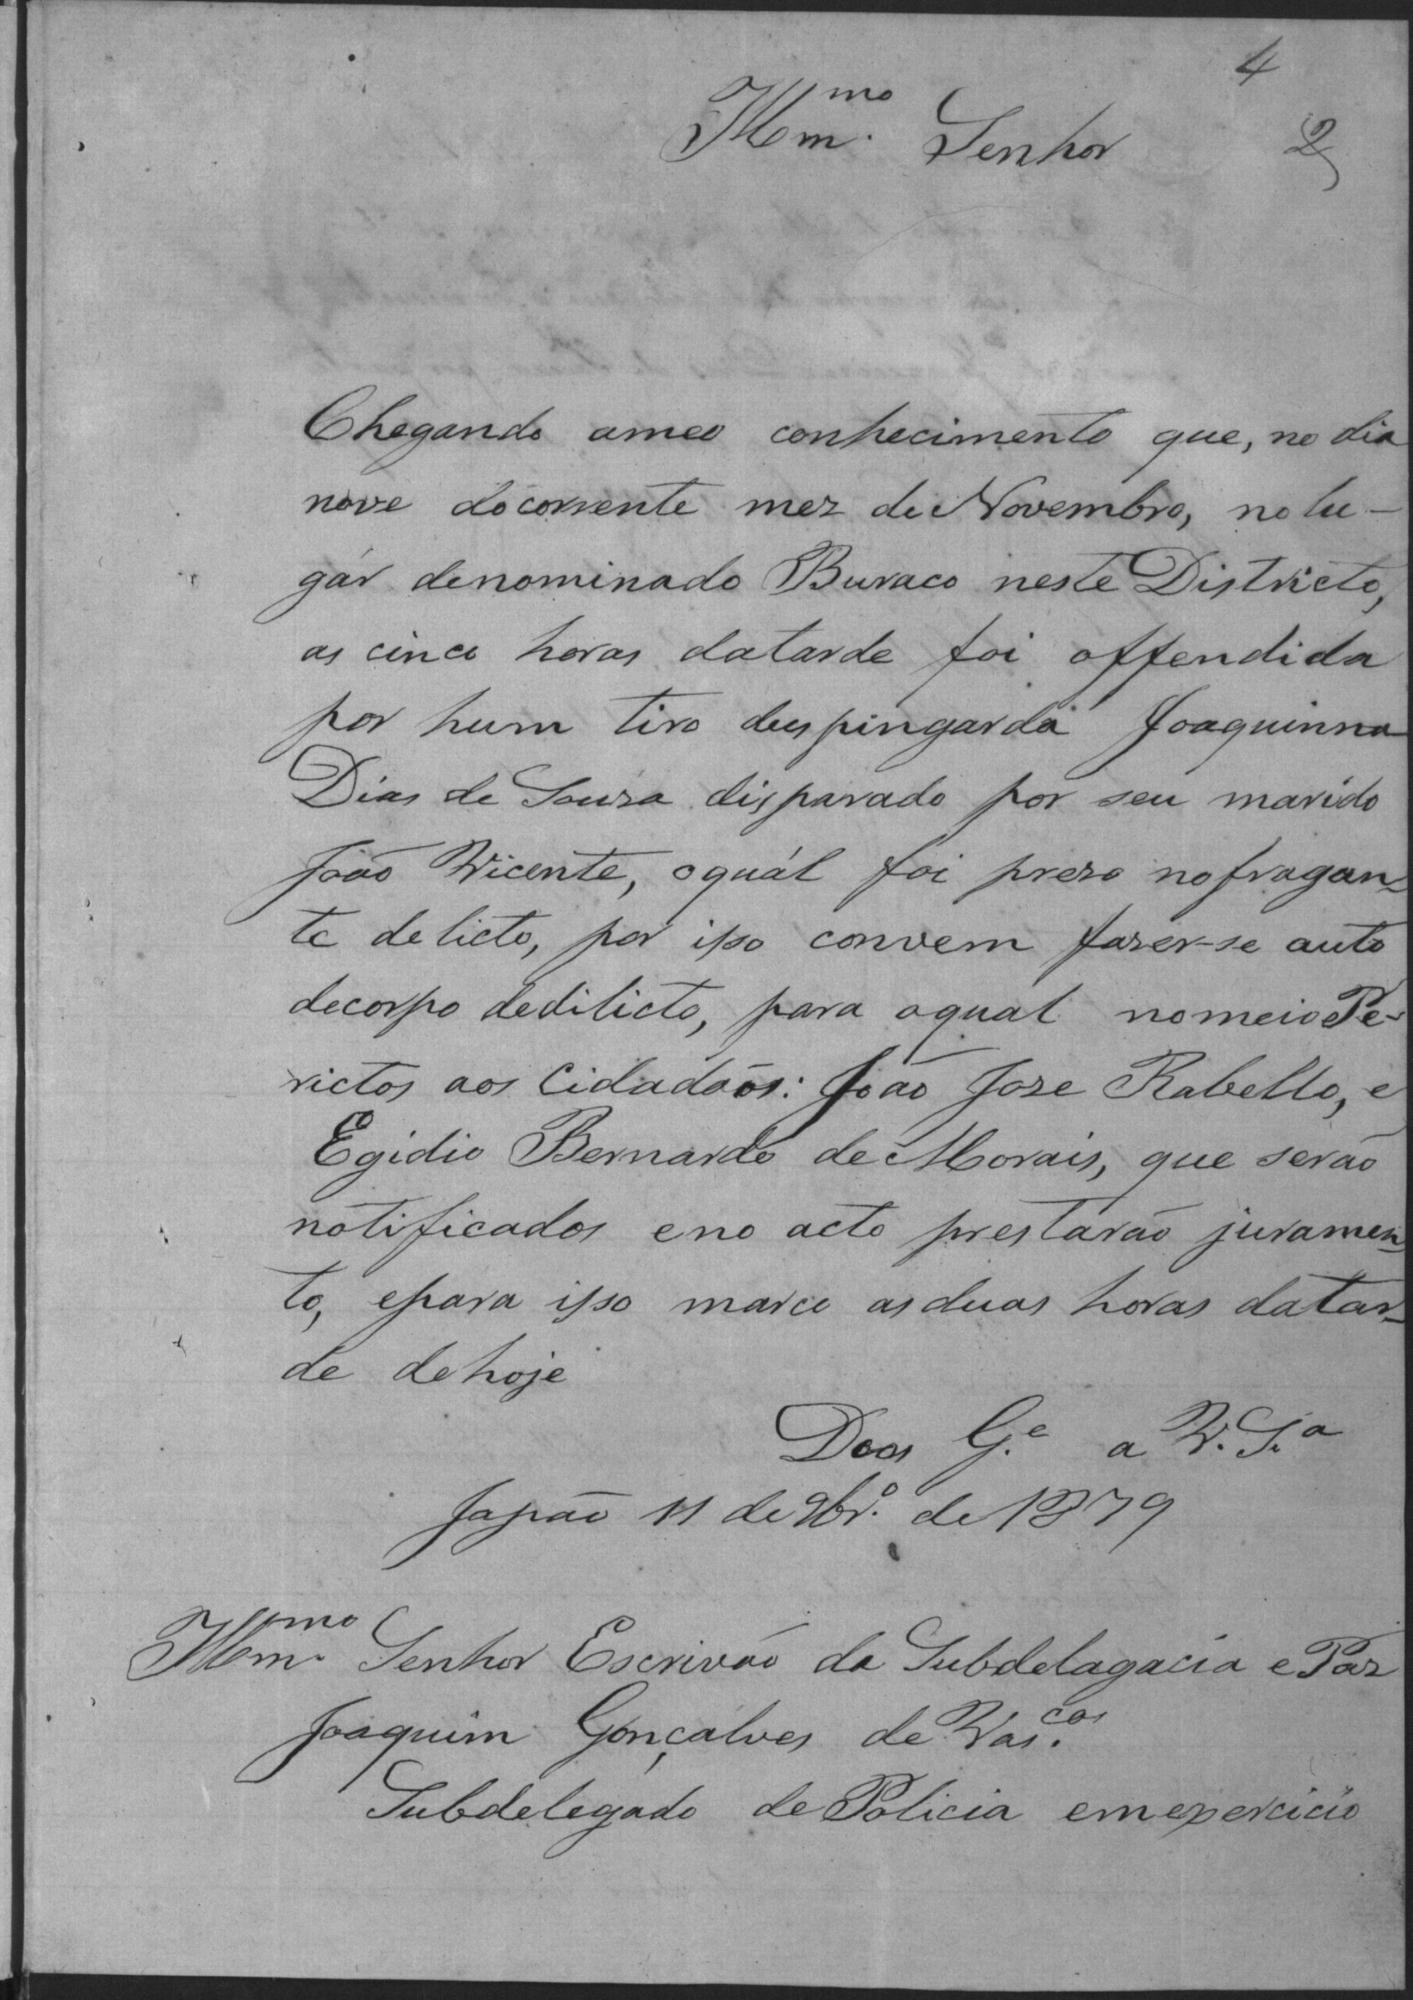 4
Illm.mo Senhor
2
Chegando ameo conhecimento que, no dia
nove docorrente mez de Novembro, nolu-
gár denominado Buraco neste Districto,
as cinco horas datarde foi offendida
por hum tiro despingarda Joaquinna
Dias de Souza disparado por seu marido
João Vicente, oquál foi prezo nofragan-
te delicto, por isso convem fazer-se auto
decorpo dedilicto, para oqual nomeio Pe-
rictos aos Cidadãos: João Joze Rabello, e
Egidio Bernardo de Morais, que serão
notificados eno acto prestarão juramen-
to, epara isso marco asduas horas datar-
de dehoje
Deos G.e a V. S.a
Japão 11 de 9br.o de 1879
Illm.mo Senhor Escrivão da Subdelagacia e Paz
Joaquim Gonçalves de Vas.cos
Subdelegado de Policia emexercicio